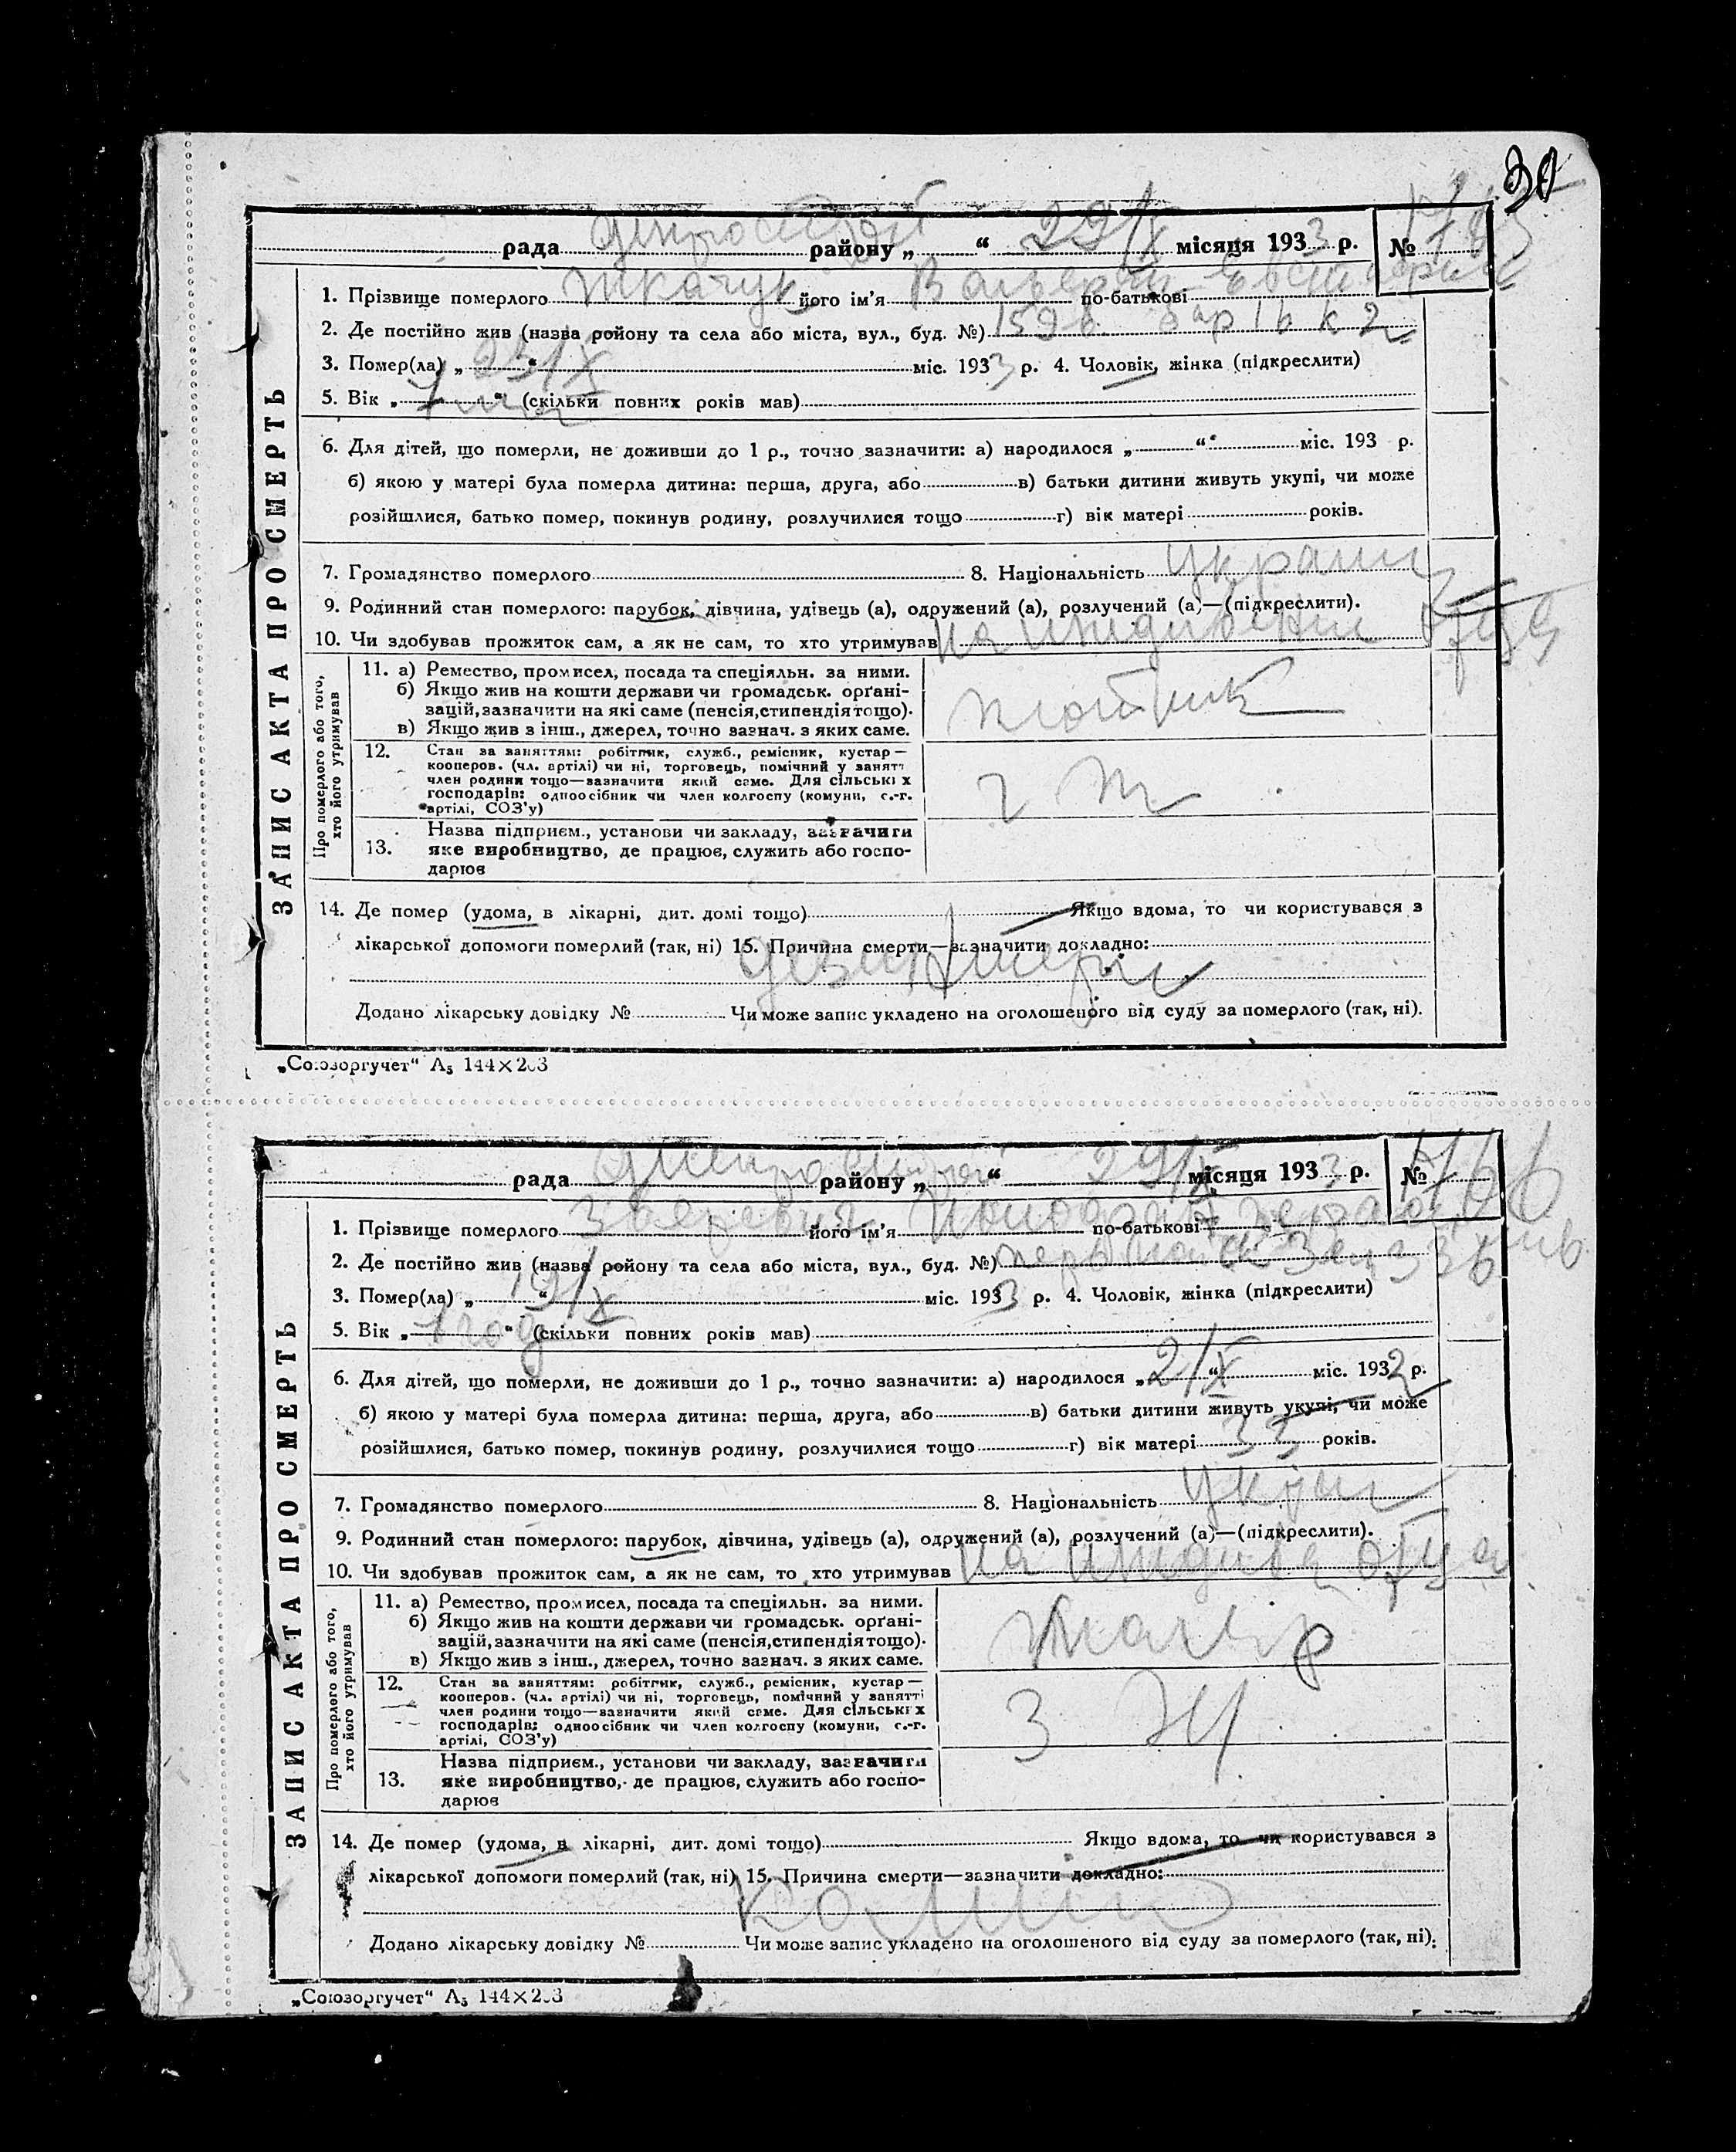 30
рада Днепрострой району „ “ 29/X місяця 1933 р. №
1. Прізвище померлого Ткачук його ім’я Валерий по-батькові
2. Де постійно жив (назва ройону та села або міста, вул., буд. №) 159 б барік к 2
3. Помер(ла) „ “ міс. 1933 р. 4. Чоловік, жінка (підкреслити)
5. Вік „ “ (скільки повних років мав)
6. Для дітей, що померли, не доживши до 1 р., точно зазначити: а) народилося „ “ міс. 193 р.
б) якою у матері була померла дитина: перша, друга, або в) батьки дитини живуть укупі, чи може
розійшлися, батько помер, покинув родину, розлучилися тощо г) вік матері років.
7. Громадянство померлого 8. Національність украин
9. Родинний стан померлого: парубок, дівчина, удівець (а), одружений (а), розлучений (а)—(підкреслити).
10. Чи здобував прожиток сам, а як не сам, то хто утримував на иждивении отца
ЗАПИС АКТА ПРО СМЕРТЬ
Про померлого або того, хто його утримував
11. а) Ремество, промисел, посада та спеціяльн. за ними.
б) Якщо жив на кошти держави чи громадськ. орґані-
зацій, зазначити на які саме (пенсія, стипендія тощо).
в) Якщо жив з інш., джерел, точно зазнач. з яких саме.
12. Стан за заняттям: робітник, служб., ремісник, кустар—
кооперов. (чл. артілі) чи ні, торговець, помічний у занятті
член родини тощо—зазначити який саме. Для сільських
господарів: одноосібник чи член колгоспу (комуни, с.-г.
артілі, СОЗ’у)
13. Назва підприєм., установи чи закладу, зазначити
яке виробництво, де працює, служить або госпо-
дарює
14. Де помер (удома, в лікарні, дит. домі тощо) Якщо вдома, то чи користувався з
лікарської допомоги померлий (так, ні) 15. Причина смерти—зазначити докладно:
дезинтерия
Додано лікарську довідку № Чи може запис укладено на оголошеного від суду за померлого (так, ні).
„Союзоргучет“ А5 144×203
рада Днепрострой району „ “ 29/X місяця 1933 р. №
1. Прізвище померлого його ім’я по-батькові
2. Де постійно жив (назва ройону та села або міста, вул., буд. №)
3. Помер(ла) „ 19/X “ міс. 1933 р. 4. Чоловік, жінка (підкреслити)
5. Вік „ 1 год “ (скільки повних років мав)
6. Для дітей, що померли, не доживши до 1 р., точно зазначити: а) народилося „ 21/X “ міс. 1932 р.
б) якою у матері була померла дитина: перша, друга, або в) батьки дитини живуть укупі, чи може
розійшлися, батько помер, покинув родину, розлучилися тощо г) вік матері 33 років.
7. Громадянство померлого 8. Національність украи
9. Родинний стан померлого: парубок, дівчина, удівець (а), одружений (а), розлучений (а)—(підкреслити).
10. Чи здобував прожиток сам, а як не сам, то хто утримував на иждив отца
ЗАПИС АКТА ПРО СМЕРТЬ
Про померлого або того, хто його утримував
11. а) Ремество, промисел, посада та спеціяльн. за ними.
б) Якщо жив на кошти держави чи громадськ. орґані-
зацій, зазначити на які саме (пенсія, стипендія тощо).
в) Якщо жив з інш., джерел, точно зазнач. з яких саме.
12. Стан за заняттям: робітник, служб., ремісник, кустар—
кооперов. (чл. артілі) чи ні, торговець, помічний у занятті
член родини тощо—зазначити який саме. Для сільських
господарів: одноосібник чи член колгоспу (комуни, с.-г.
артілі, СОЗ’у)
13. Назва підприєм., установи чи закладу, зазначити
яке виробництво, де працює, служить або госпо-
дарює
14. Де помер (удома, в лікарні, дит. домі тощо) Якщо вдома, то чи користувався з
лікарської допомоги померлий (так, ні) 15. Причина смерти—зазначити докладно:
Додано лікарську довідку № Чи може запис укладено на оголошеного від суду за померлого (так, ні).
„Союзоргучет“ А5 144×203